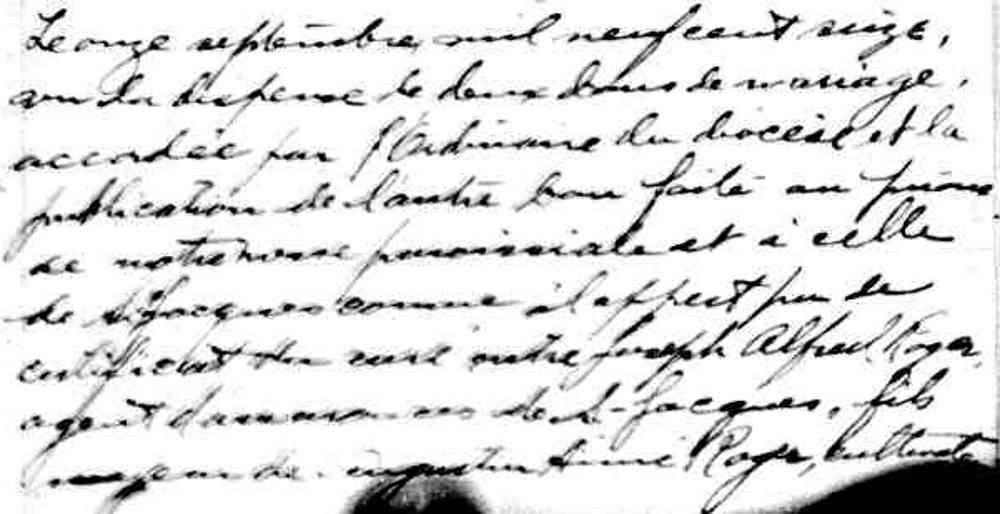 Le onze septembre, mil neuf cent seize,
vu la dispense de deux bans de mariage,
accordée par l'Ordinaire du diocèse et la
publication de l'autre ban faite au prône
de notre messe paroissiale et à celle
de St Jacques comme il appert par le
certificat du curé entre Joseph Alfred Roger,
agent d'assurances de St-Jacques, fils
majeur de Augustin Aimé Roger, cultivate